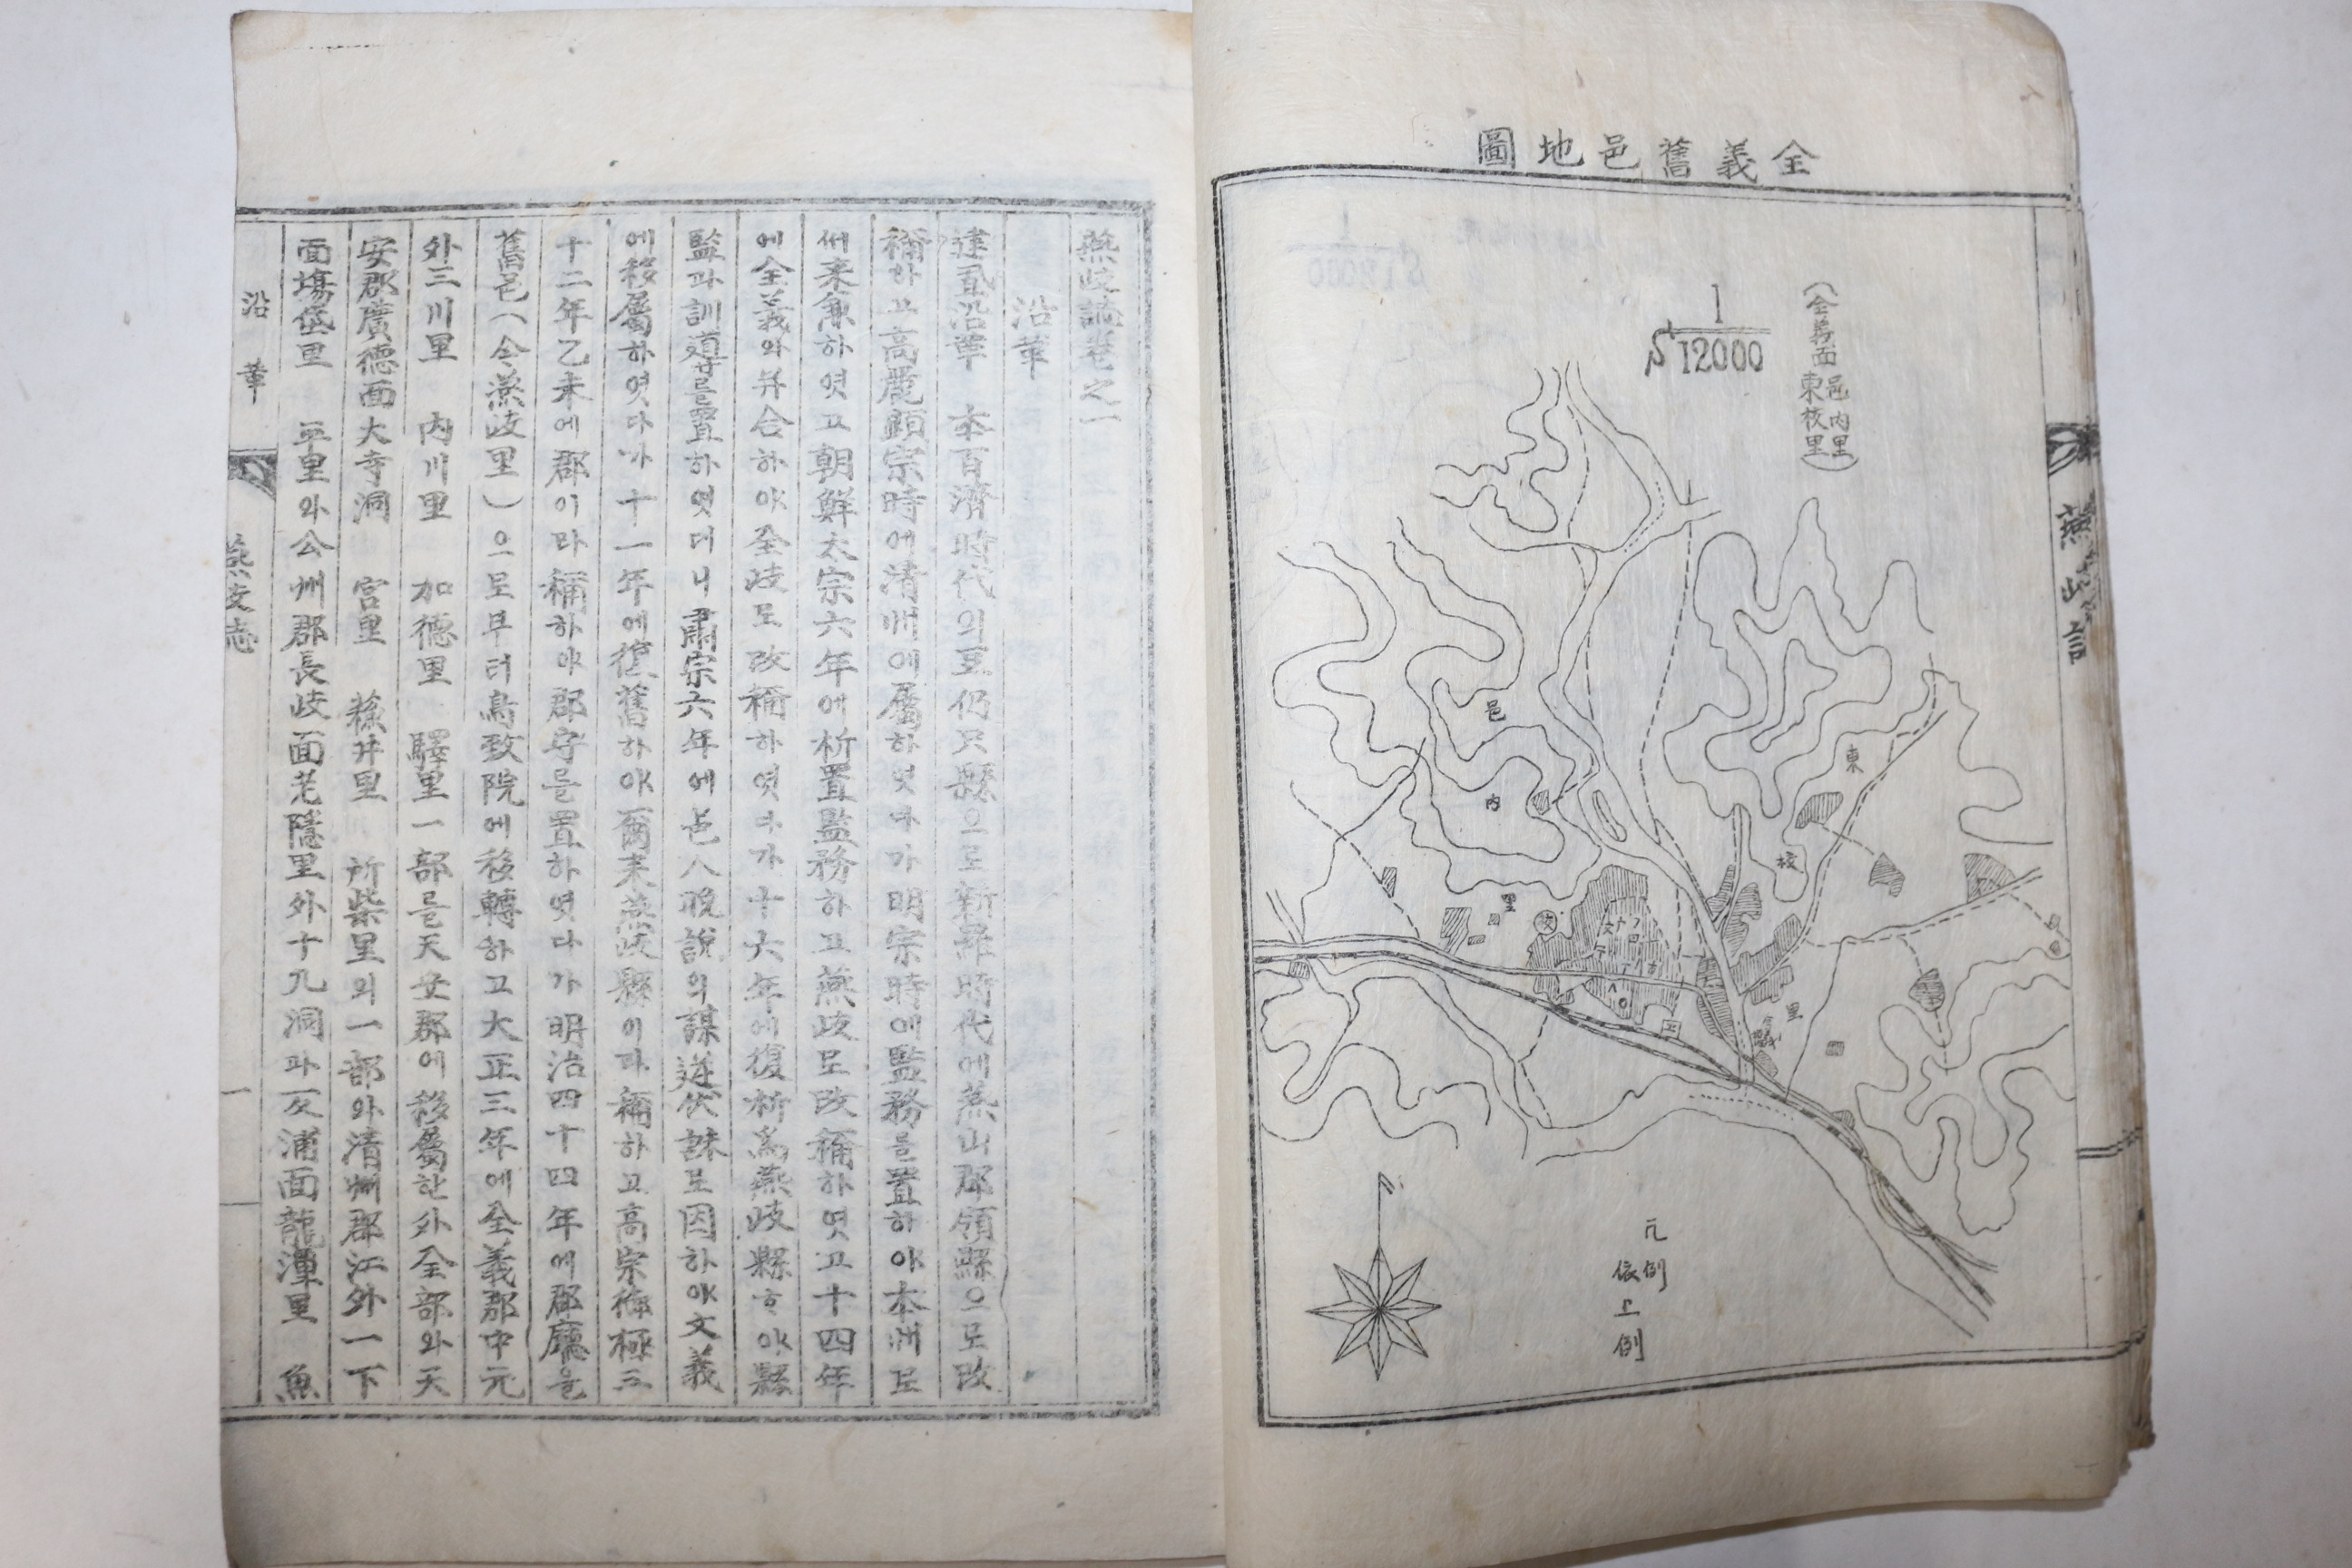 全義舊邑地圖
(全義面 邑內里 東校里)
1
S 12000
邑
內
里
東
校
里
凡例
依上例
燕岐誌
燕岐誌卷之一
沿革
建置沿革 本百濟時代의豆仍只縣으로新羅時代에燕山郡領縣으로改
稱하고高麗顯宗時에淸州에屬하엿다가明宗時에監務를置하야本州로
써來兼하엿고朝鮮太宗六年에析置監務하고燕歧로改稱하엿고十四年
에全義와幷合하야全岐로改稱하엿다가十六年에復析爲燕岐縣하야縣
監과訓導를置하엿더니肅宗六年에邑人脫說의謀逆伏誅로因하야文義
에移屬하엿다가十一年에復舊하야爾來燕岐縣이라稱하고高宗御極三
十二年乙未에郡이라稱하야郡守를置하엿다가明治四十四年에郡廳을
舊邑(今燕岐里)으로부터鳥致院에移轉하고大正三年에全義郡中元
外三川里 內川里 加德里 驛里一部를天安郡에移屬한外全部와天
安郡廣德面大寺洞 宮里 蓀井里 所柴里의一部와淸州郡江外一下
面塲垈里 平里와公州郡長岐面老隱里外十九洞과反浦面龍潭里 魚
沿革
燕岐志
一